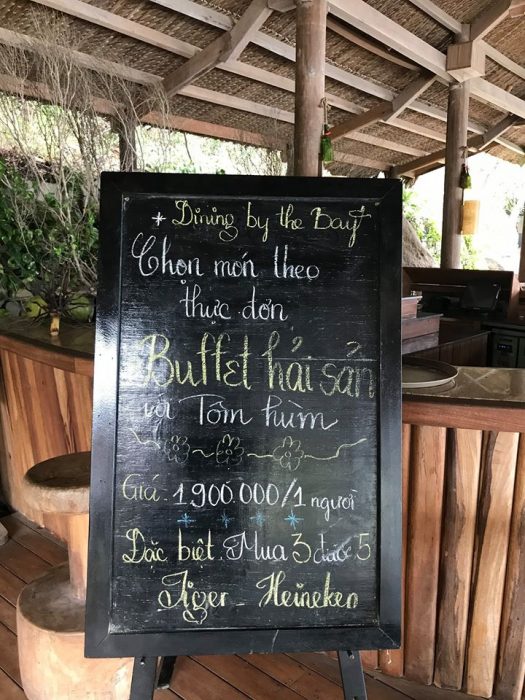 Dining by the Bay
Chọn món theo
thực đơn
Buffet hải sản
với Tôm hùm
Giá: 1.900.000/1 người
Đặc biệt. Mua 3 được 5
Tiger - Heineken